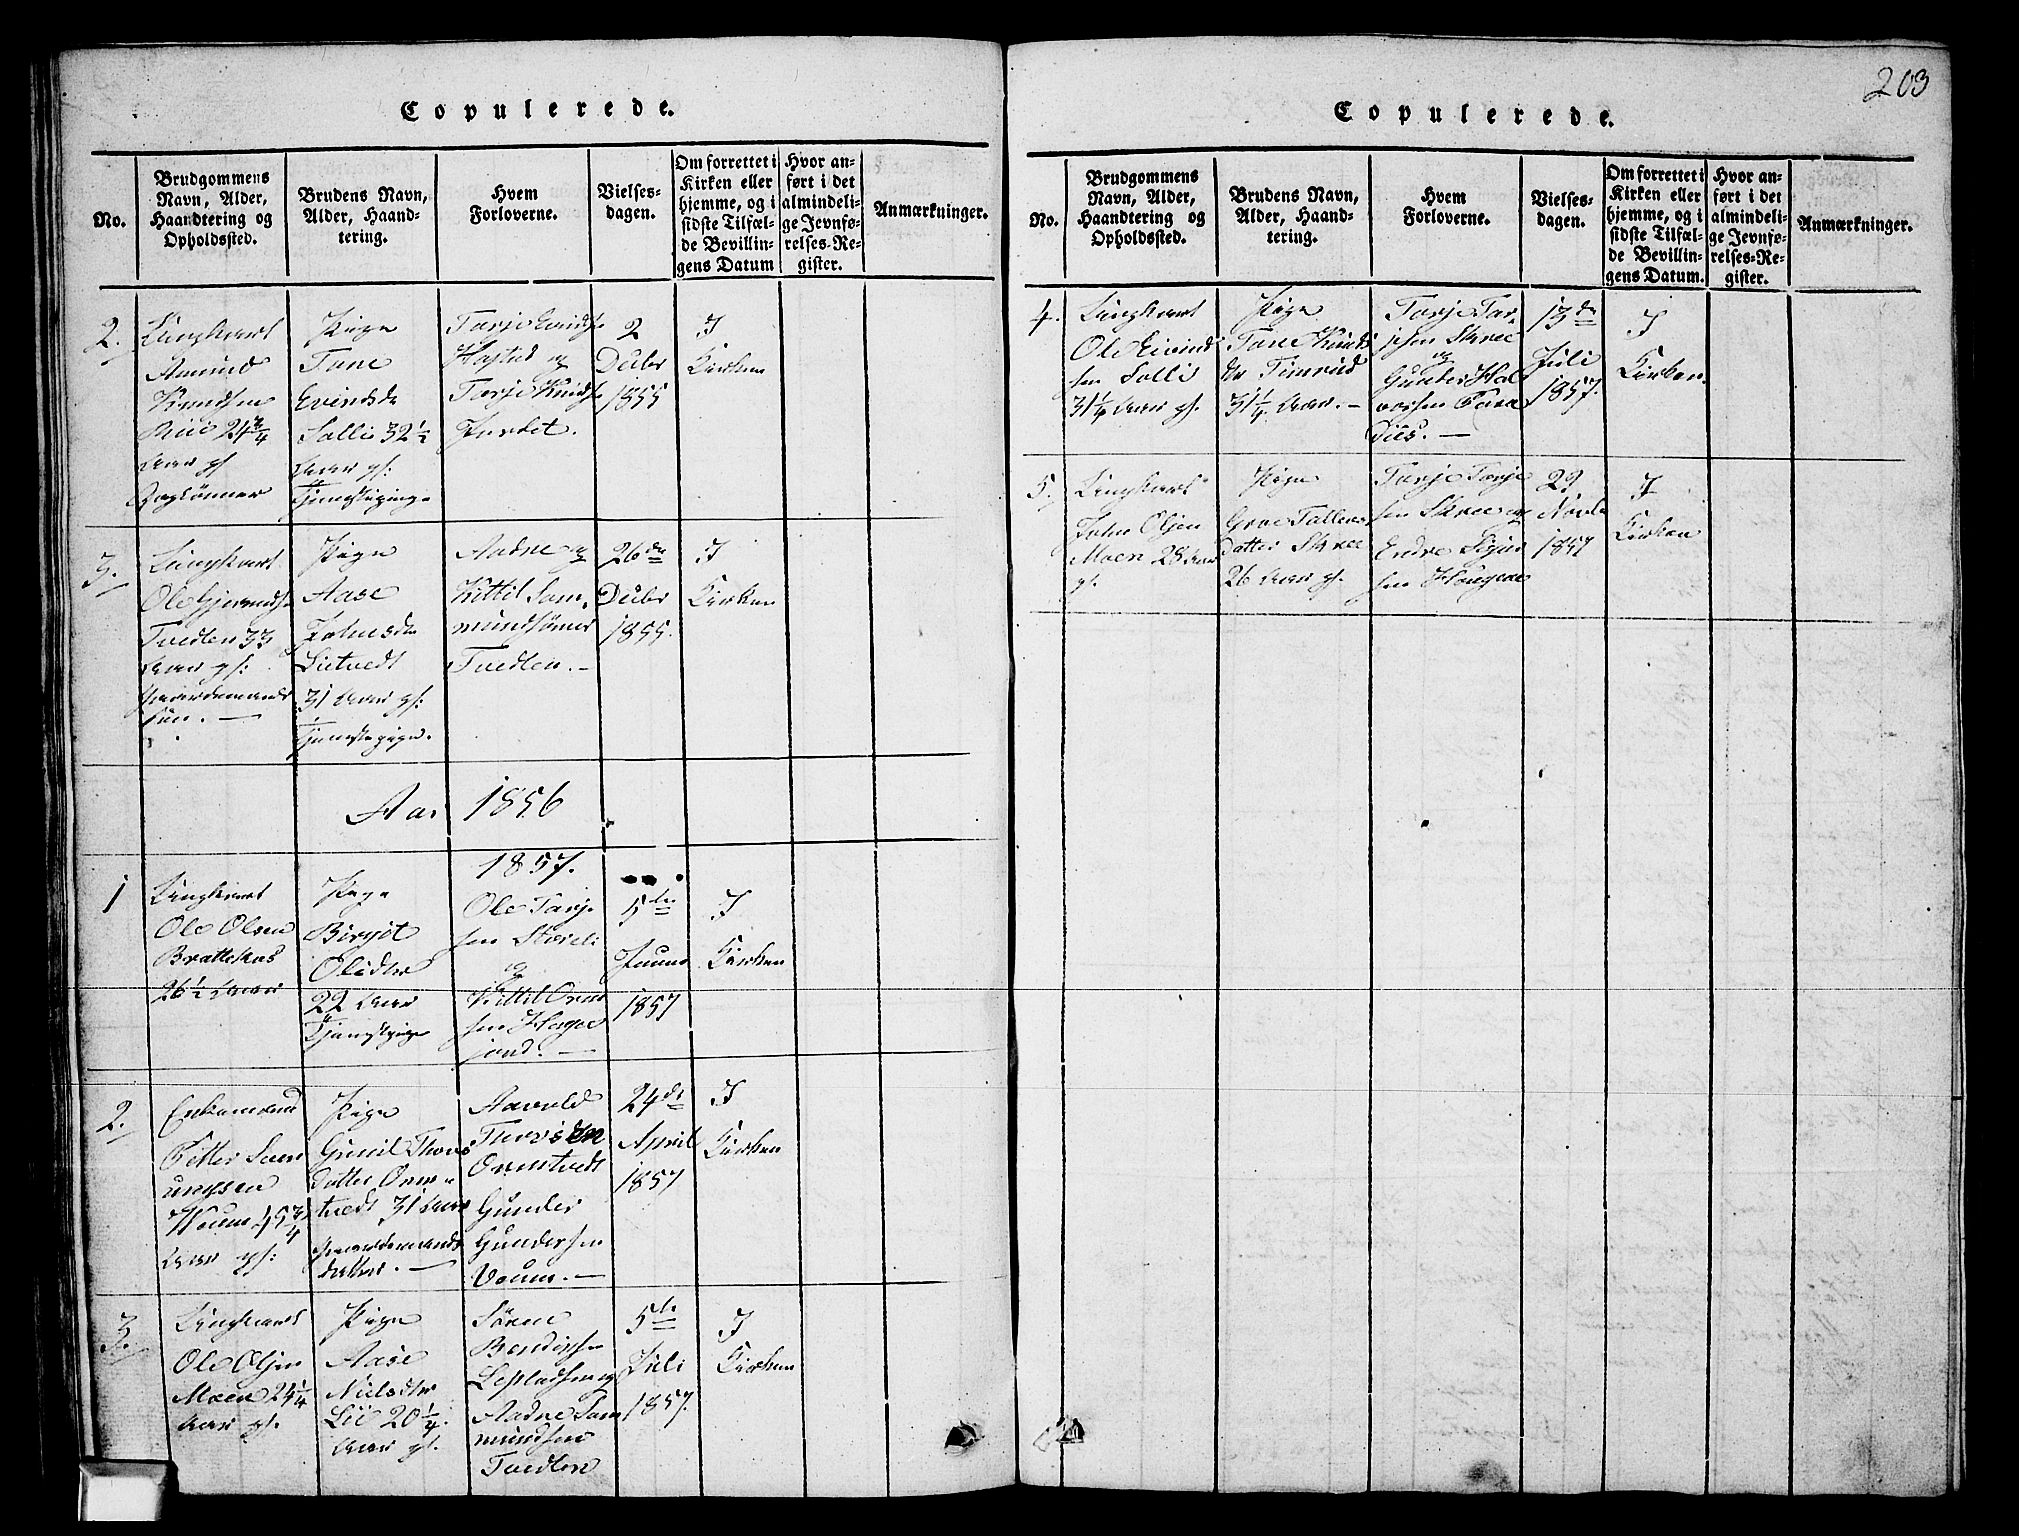 203
Copulerede.
No.
Brudgommens
Navn, Alder,
Haandtering og
Opholdssted.
Brudens Navn,
Alder, Haand-
tering.
Hvem
Forloverne.
Vielses-
dagen.
Om forrettet i
Kirken eller
hjemme, og i
sidste Tilfæl-
de Bevillin-
gens Datum
Hvor an-
ført i det
almindeli-
ge Jevnfø-
relses-Re-
gister.
Anmærkninger.
2.
Ungkarl
Amund
Knudsen
24 3/4
Aar gl
Pige
Tone
Evindsdr
Solli 32 1/2
Aar gl:
Tarje Evinds
og
Tarje Knuds
2
Decbr
1855
I
Kirken
3.
Ungkarl
Ole
Tvedten 33
Aar gl:
Gaardmands
søn. —
Pige
Aase
Johnsdr
Lietvedt
31 Aar gl:
Tjenestepige.
Aadne og
Kittil Sam-
mundsønner
Tvedten. —
26de
Decbr
1855.
I
Kirken
Aar 1856
1857.
1
Ungkarl
Ole Olsen
Brattekaas
26 1/2 Aar
Pige
Birgit
Olsdtr
22 Aar
Tjenestpige
Ole Tarje
sen
og
Kittil Orm
sen Hage
jord. —
5te
Januar
1857
I
Kirken
2.
Enkemand
Petter Sven
ungsen
45 3/4
Aar gl:
Pige
Gunil Thors
datter Orm-
tvedt 31 Aar
Gaardemands
datter. —
Aavold
Thorsen
Ormtvedt
Gunder
Gundersen
Voum. —
24de
April
1857
I
Kirken
3.
Ungkarl
Ole Olsen
Moen 24 1/4
Aar gl.
Pige
Aase
Nielsdtr
Lie 20 1/4
Aar gl.
Søren
Bendixsen
og
Aadne Sam
mundsen
Tvedten
5te
Juli
1857.
I
Kirken
Copulerede.
No.
Brudgommens
Navn, Alder,
Haandtering og
Opholdssted.
Brudens Navn,
Alder, Haand-
tering.
Hvem
Forloverne.
Vielses-
dagen.
Om forrettet i
Kirken eller
hjemme, og i
sidste Tilfæl-
de Bevillin-
gens Datum.
Hvor an-
ført i det
almindeli-
ge Jevnfø-
relses-Re-
gister.
Anmærkninger.
4.
Ungkarl
Ole Eivind
sen Solli
31 1/4 Aar gl.
Pige
Tone Knuds
dr Timrud
31 1/4 Aar. —
Tarje Tar-
jesen Skree
og
Gunder Hal
vorsen Para
dies. —
13de
Juli
1857.
I
Kirken.
5.
Ungkarl
John Olsen
Moen 28 Aar
gl.
Pige
Groe Tallevs
datter Skree
26 Aar gl.
Tarje Tarje
sen Skree og
Endre Sigur
sen Haugene
29
Novbr
1857
I
Kirken